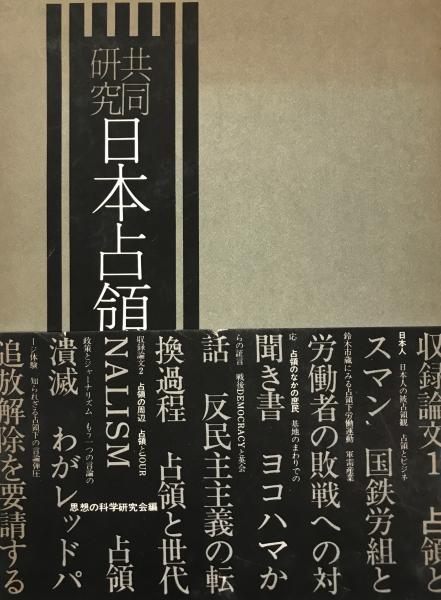 共同
研究
日本占領
収録論文1 占領と
日本人 日本人の被占領観 占領とビジネ
スマン 国鉄労組と
鈴木市蔵にみる占領下労働運動 軍需産業
労働者の敗戦への対
応 占領のなかの庶民 基地のまわりでの
聞き書 ヨコハマか
らの証言 戦後DEMOCRACYと英会
話 反民主主義の転
換過程 占領と世代
収録論文2 占領の周辺 占領とJOUR
NALISM 占領
政策とジャーナリズム もう一つの言論の
潰滅 わがレッドパ
ージ体験 知られざる占領下の言論弾圧
追放解除を要請する
思想の科学研究会編